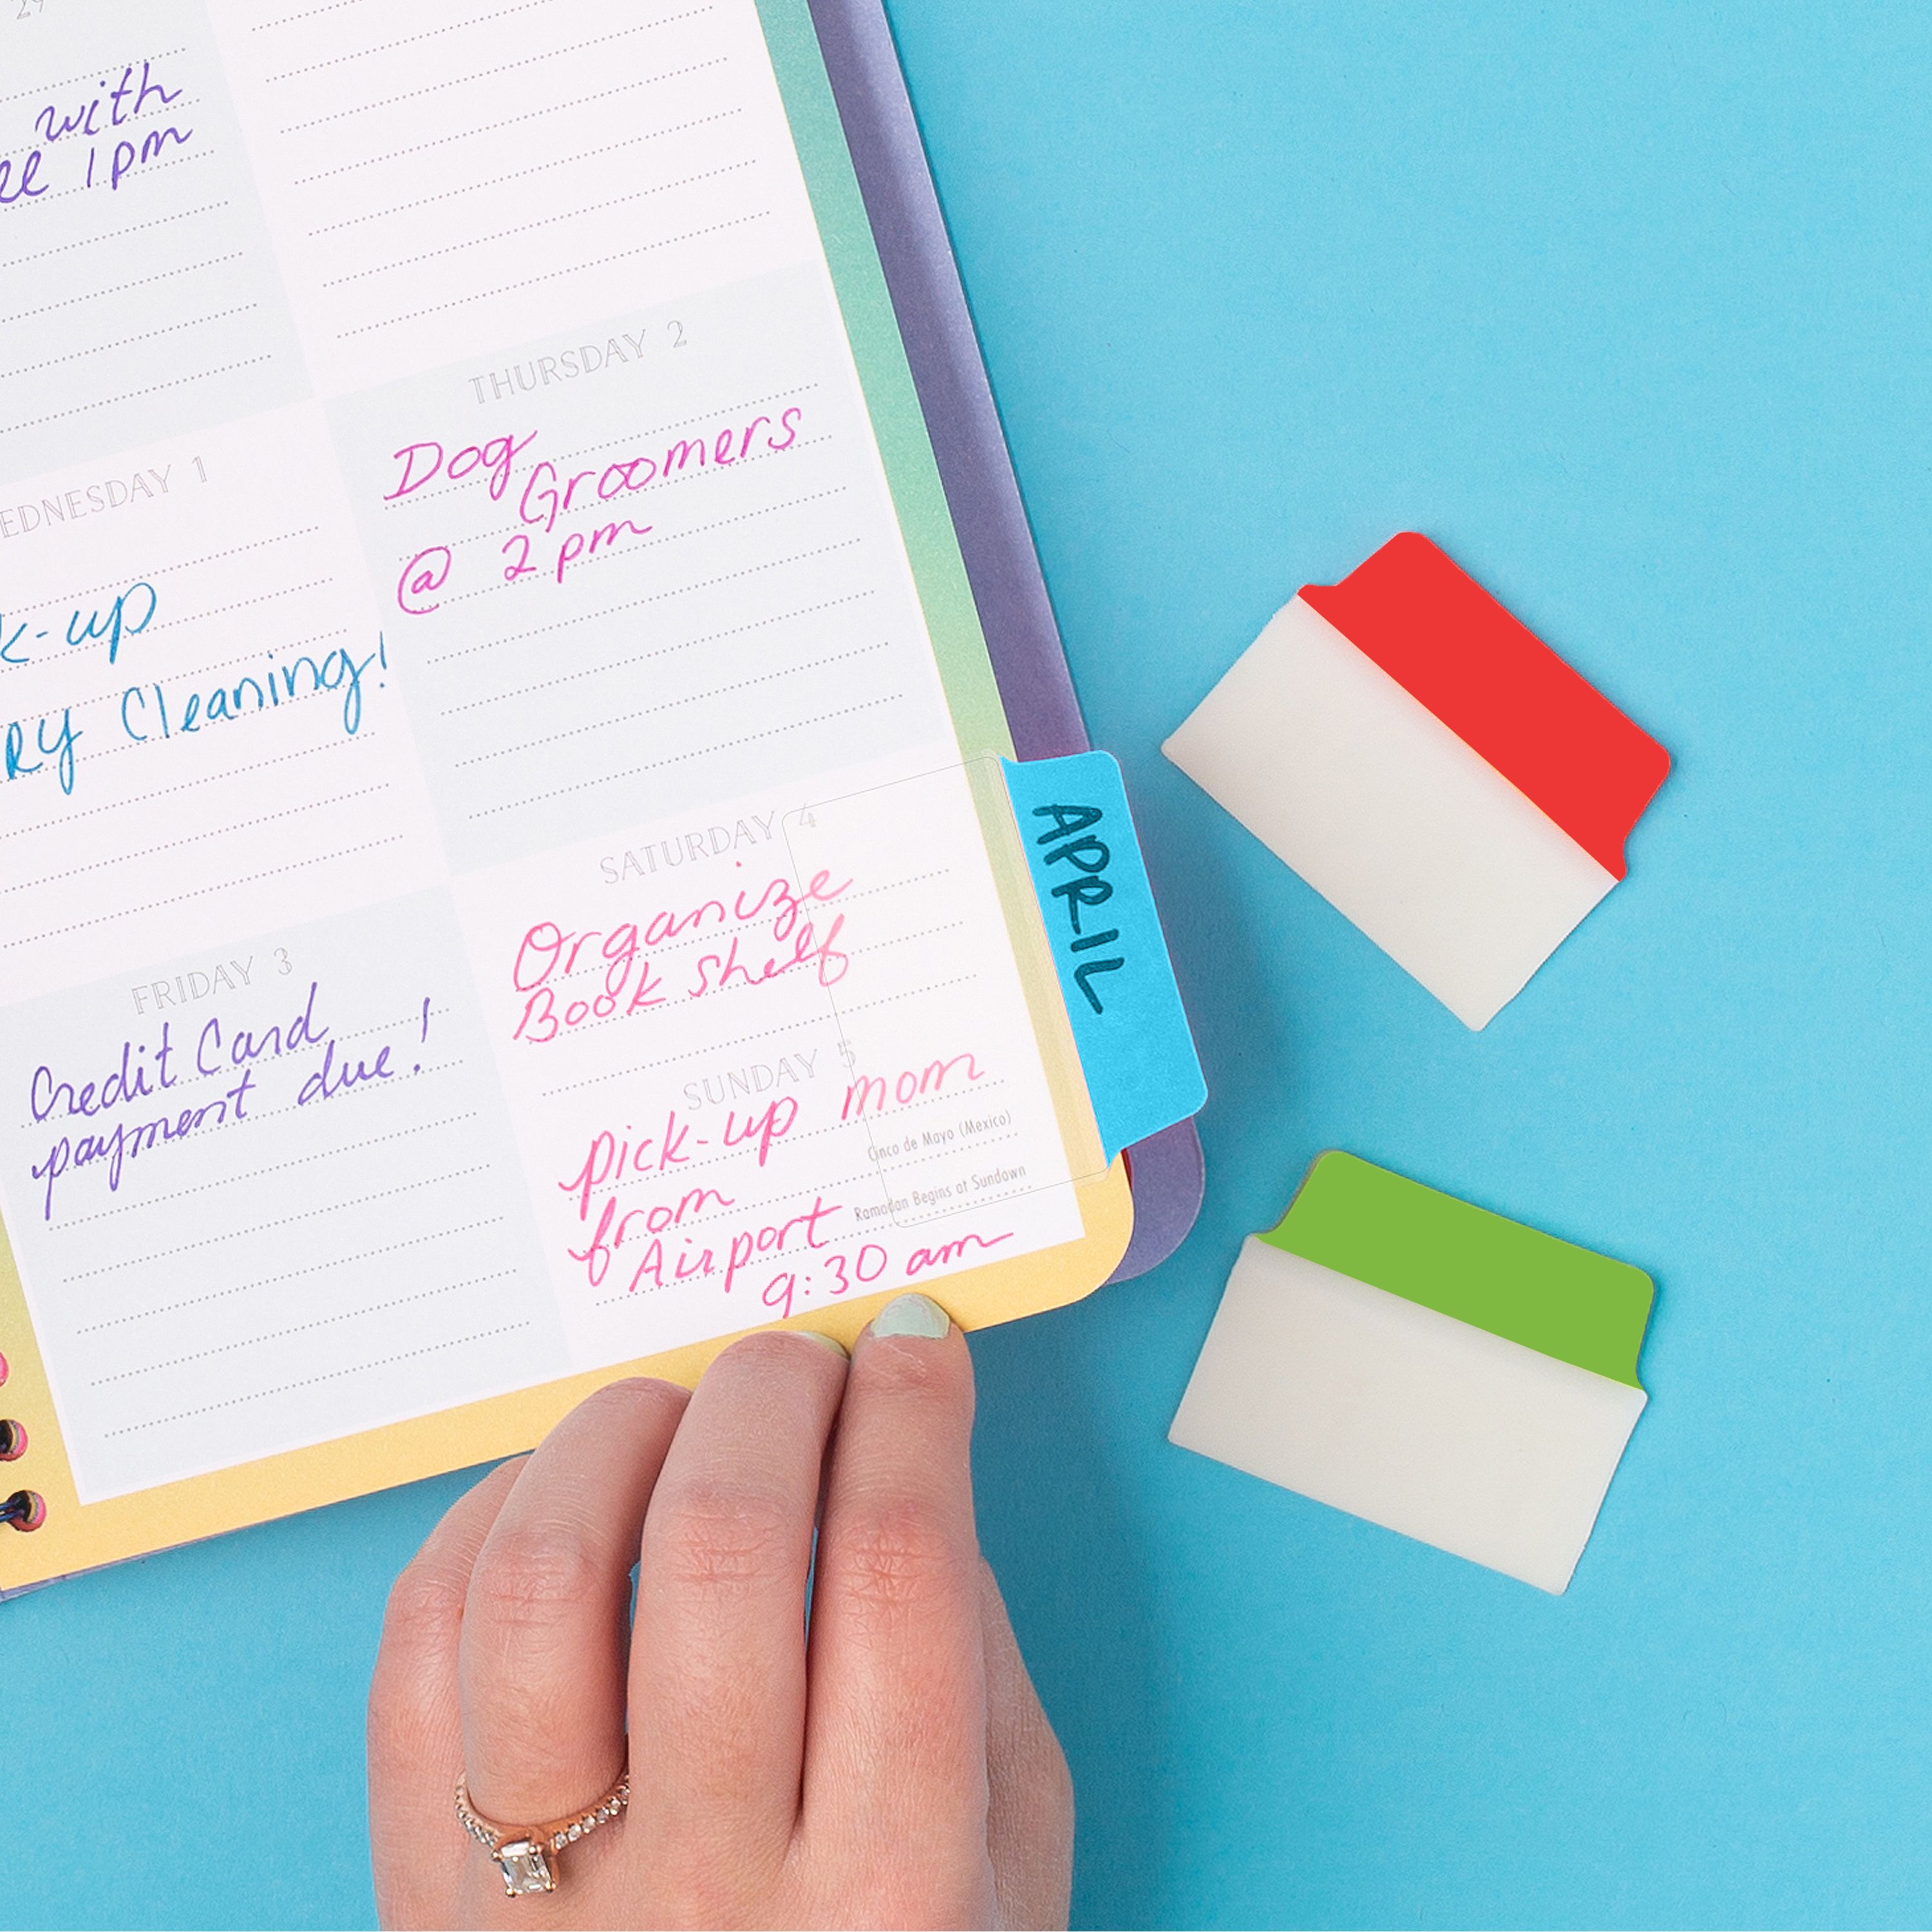 29
with
1pm
THURSDAY 2
Dog
Groomers
@ 2pm
EDNESDAY 1
k-up
RY Cleaning!
FRIDAY 3
Credit Card
payment due!
SATURDAY 4
Organize
Book shelf
SUNDAY 5
pick-up mom
Cinco de Mayo (Mexico)
from
Ramadan Begins at Sundown
Airport
9:30 am
APRIL